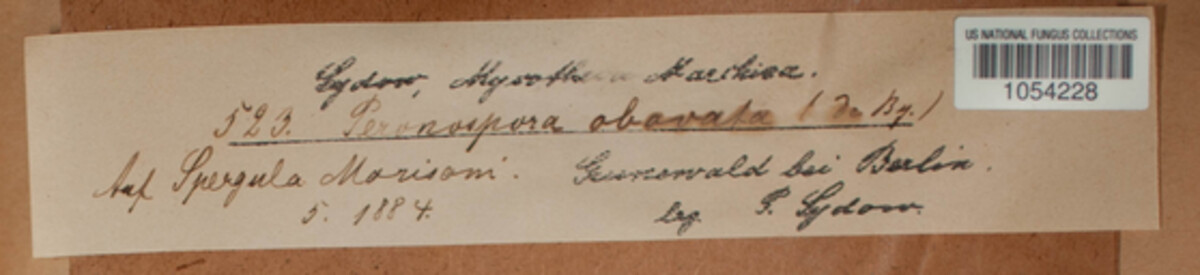 US NATIONAL FUNGUS COLLECTIONS
1054228
Sydow, Mycotheca Marchica.
523. Peronospora obovata (De By.)
Auf Spergula Morisoni. Grunewald bei Berlin.
5. 1884. leg. P. Sydow.